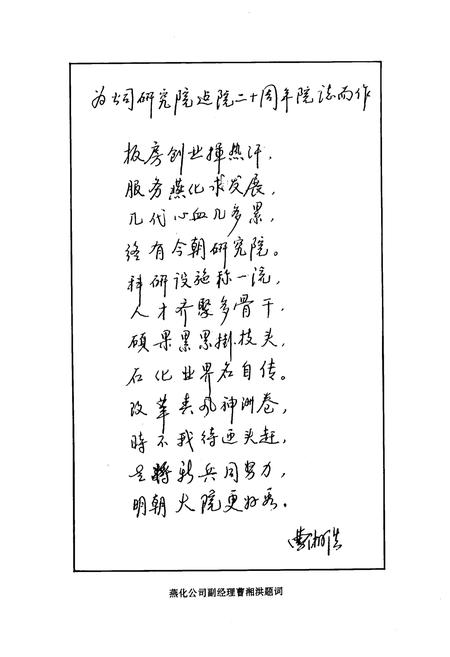 为公司研究院建院二十周年院誌而作
板房创业揮热汗，
服务燕化求发展，
几代心血几多累，
终有今朝研究院。
科研设施称一流，
人才齐聚多骨干，
碩果累累掛枝头，
石化业界名自传。
改革春风神洲卷，
時不我待迎头赶，
老將新兵同努力，
明朝大院更好看。
曹湘洪
燕化公司副经理曹湘洪题词